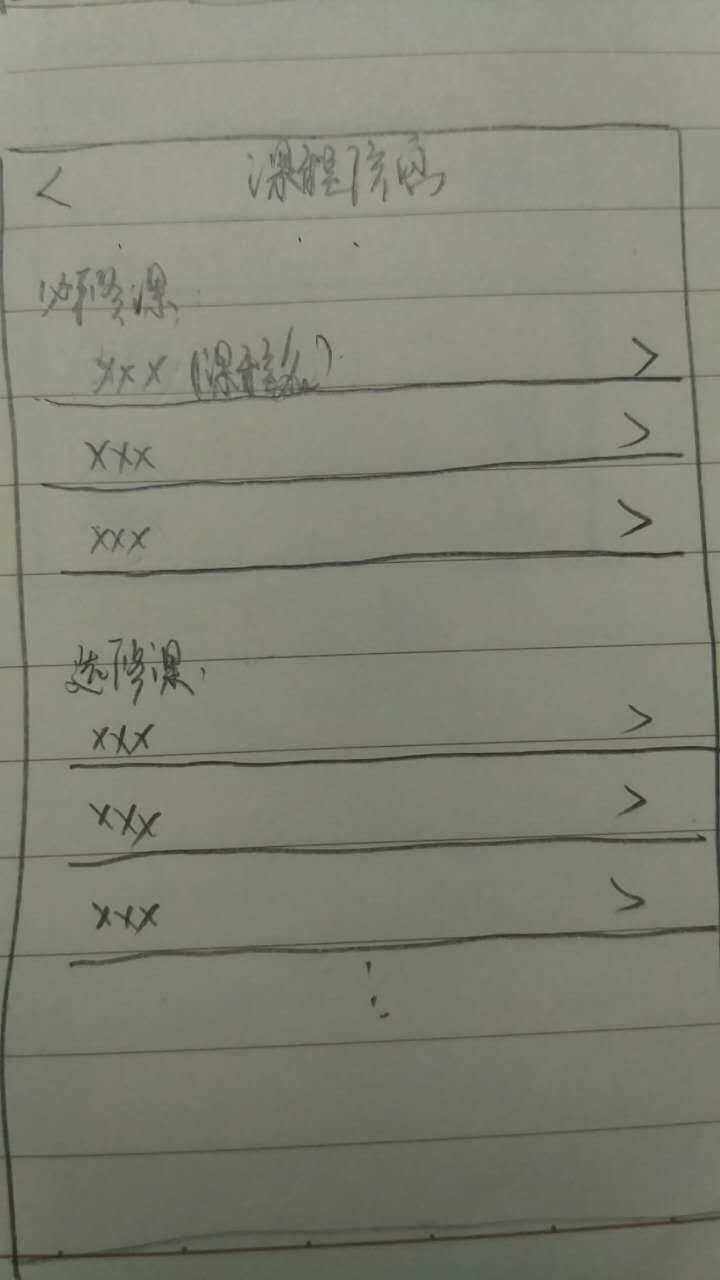 < 课程信息
必修课:
xxx (课程名) >
xxx >
xxx >
选修课:
xxx >
xxx >
xxx >